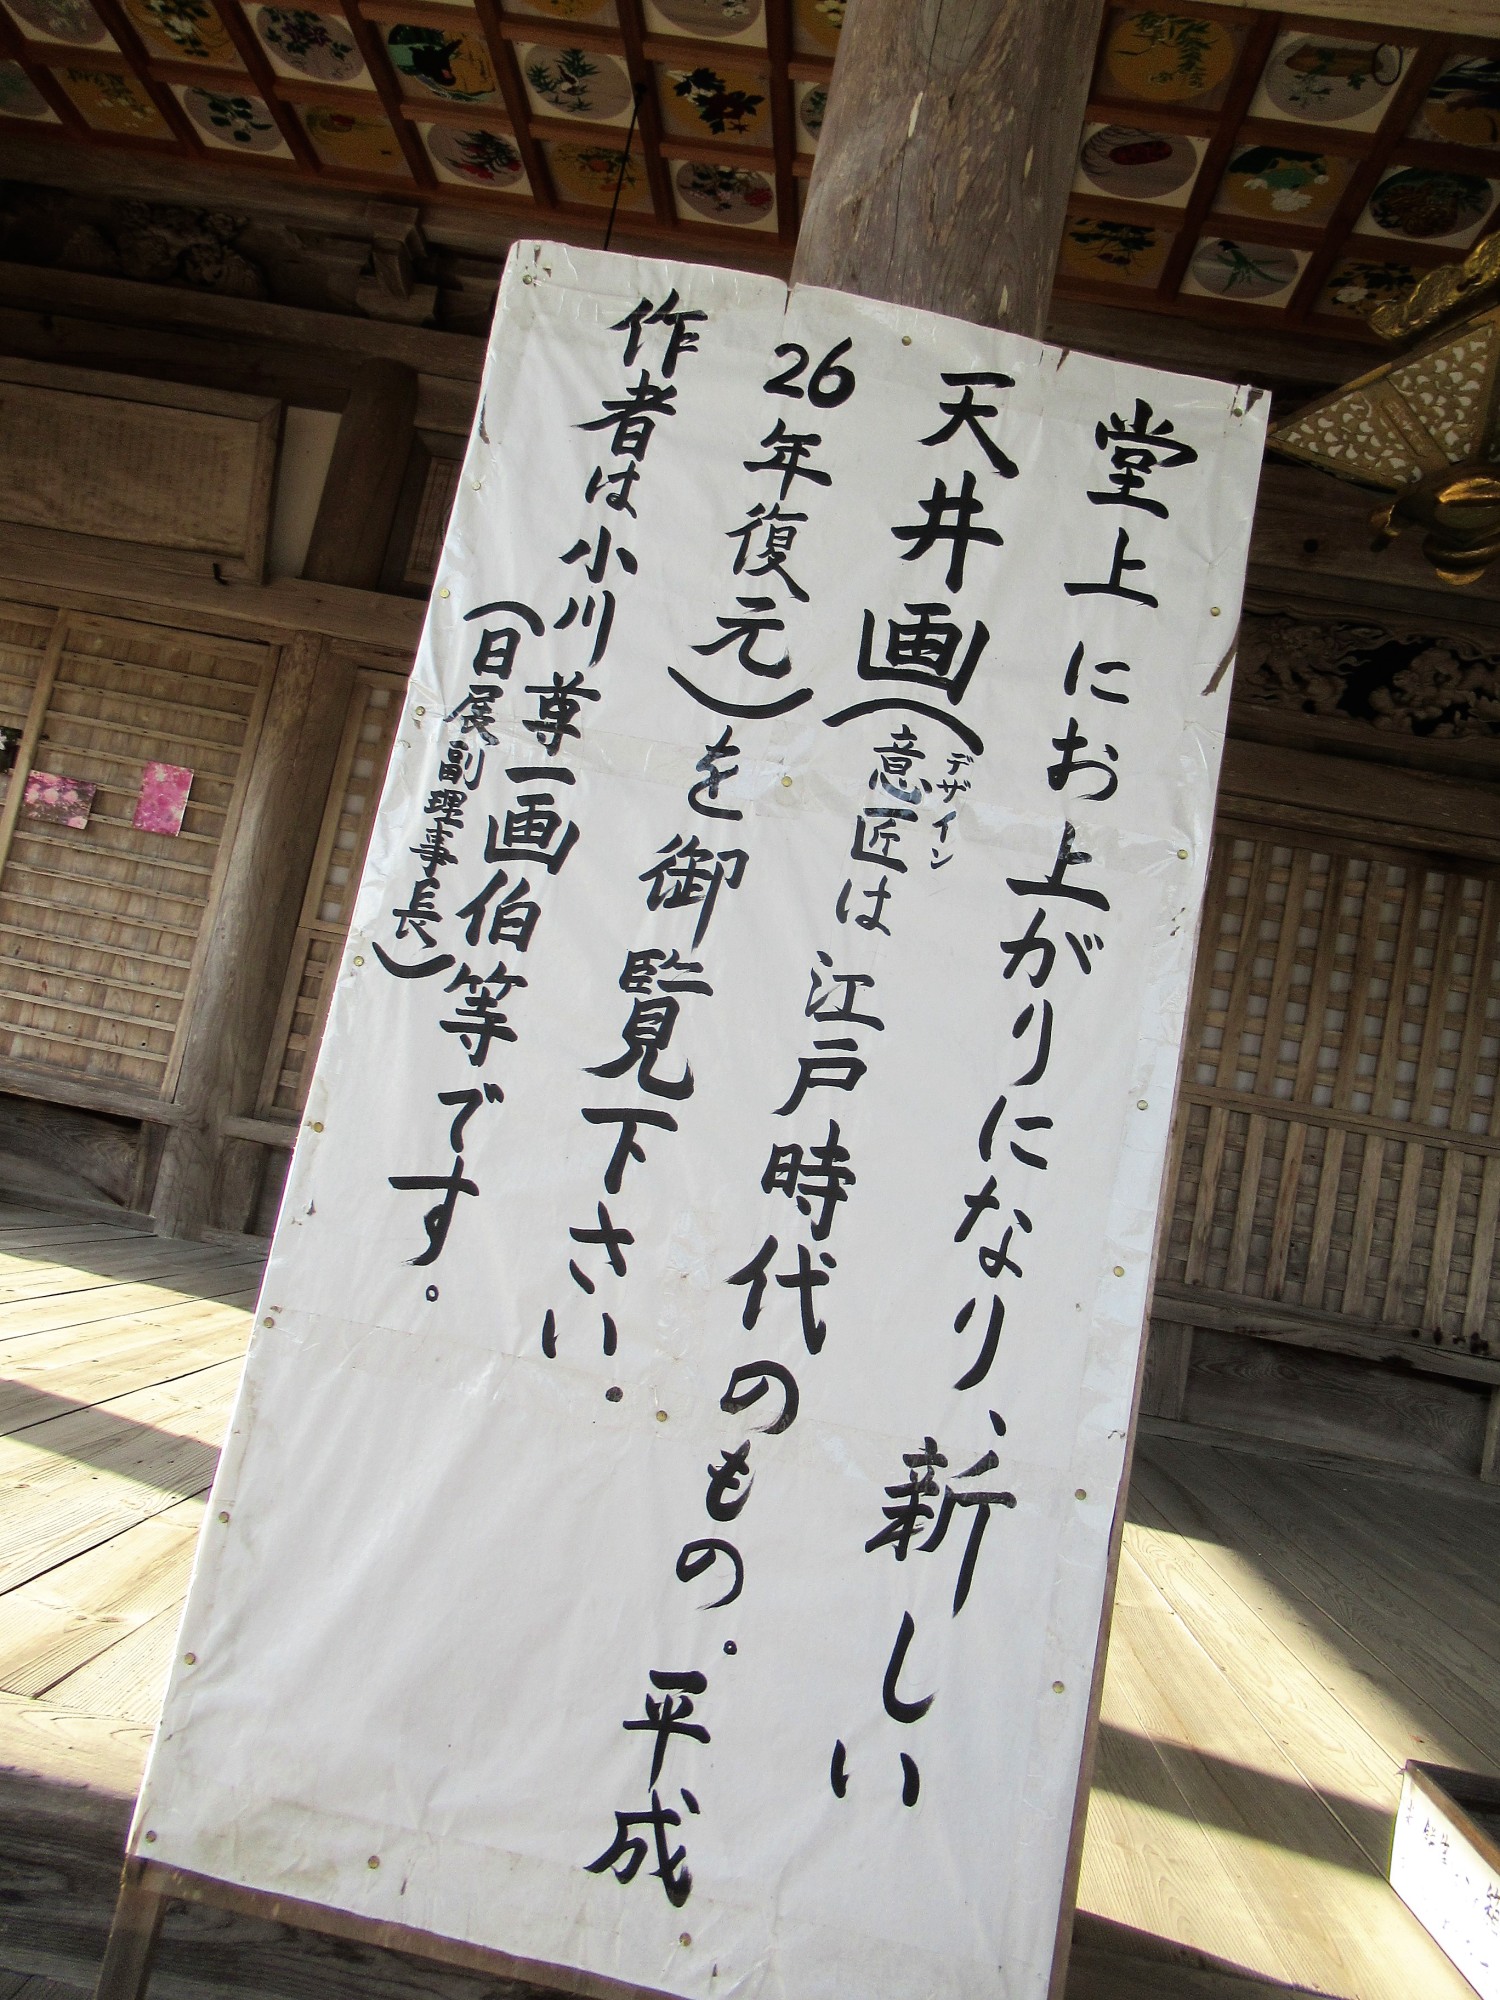 堂上にお上がりになり、新しい
天井画(意匠は江戸時代のもの.平成
デザイン
26年復元)を御覧下さい.
作者は小川尊一画伯等です.
(日展副理事長)